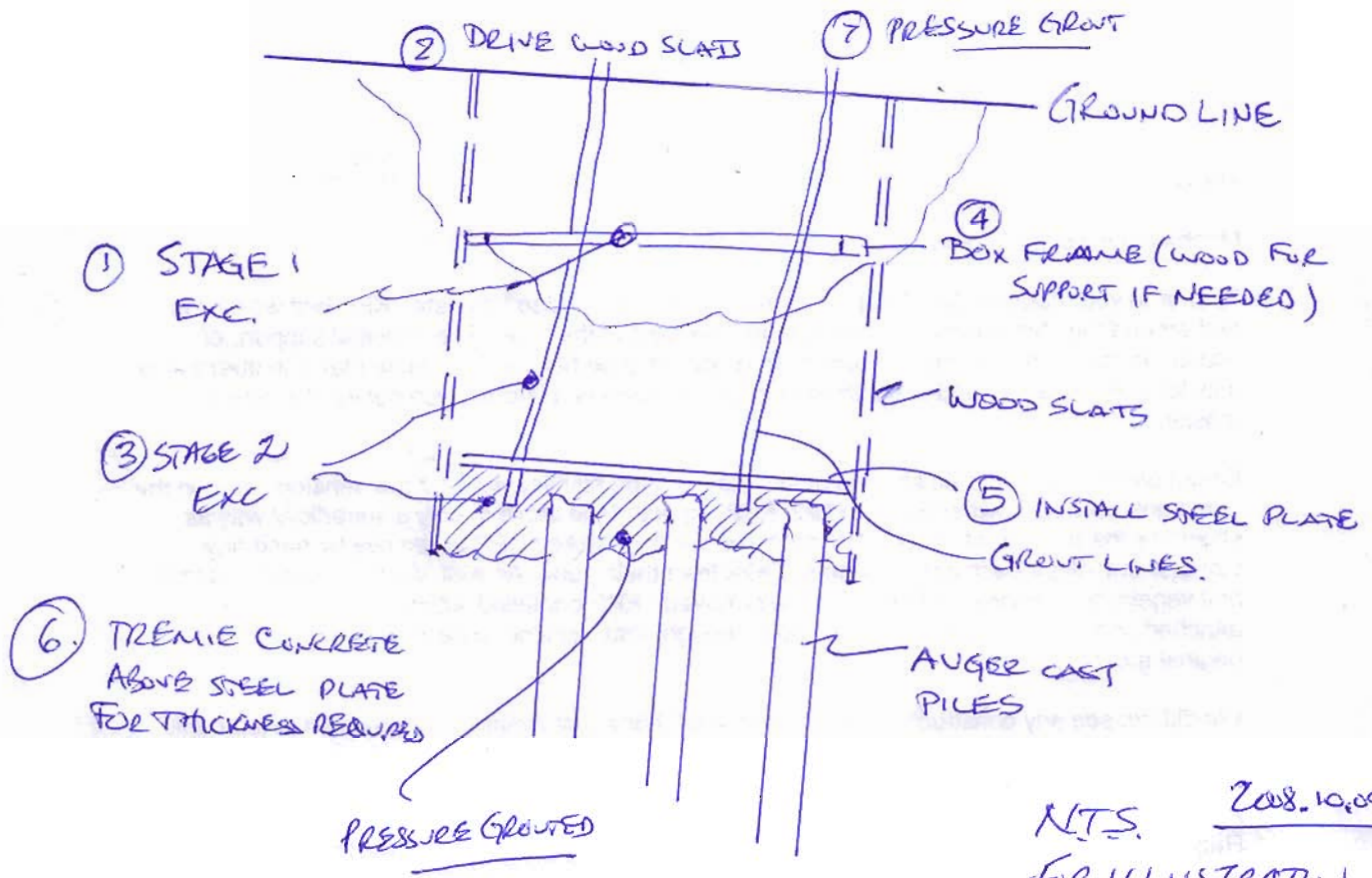 ② DRIVE WOOD SLATS
⑦ PRESSURE GROUT
GROUND LINE
① STAGE 1
EXC.
④
BOX FRAME (WOOD FOR
SUPPORT IF NEEDED)
WOOD SLATS
③ STAGE 2
EXC
⑤ INSTALL STEEL PLATE
GROUT LINES.
⑥. TREMIE CONCRETE
ABOVE STEEL PLATE
FOR THICKNESS REQUIRED
AUGER CAST
PILES
PRESSURE GROUTED
N.T.S.